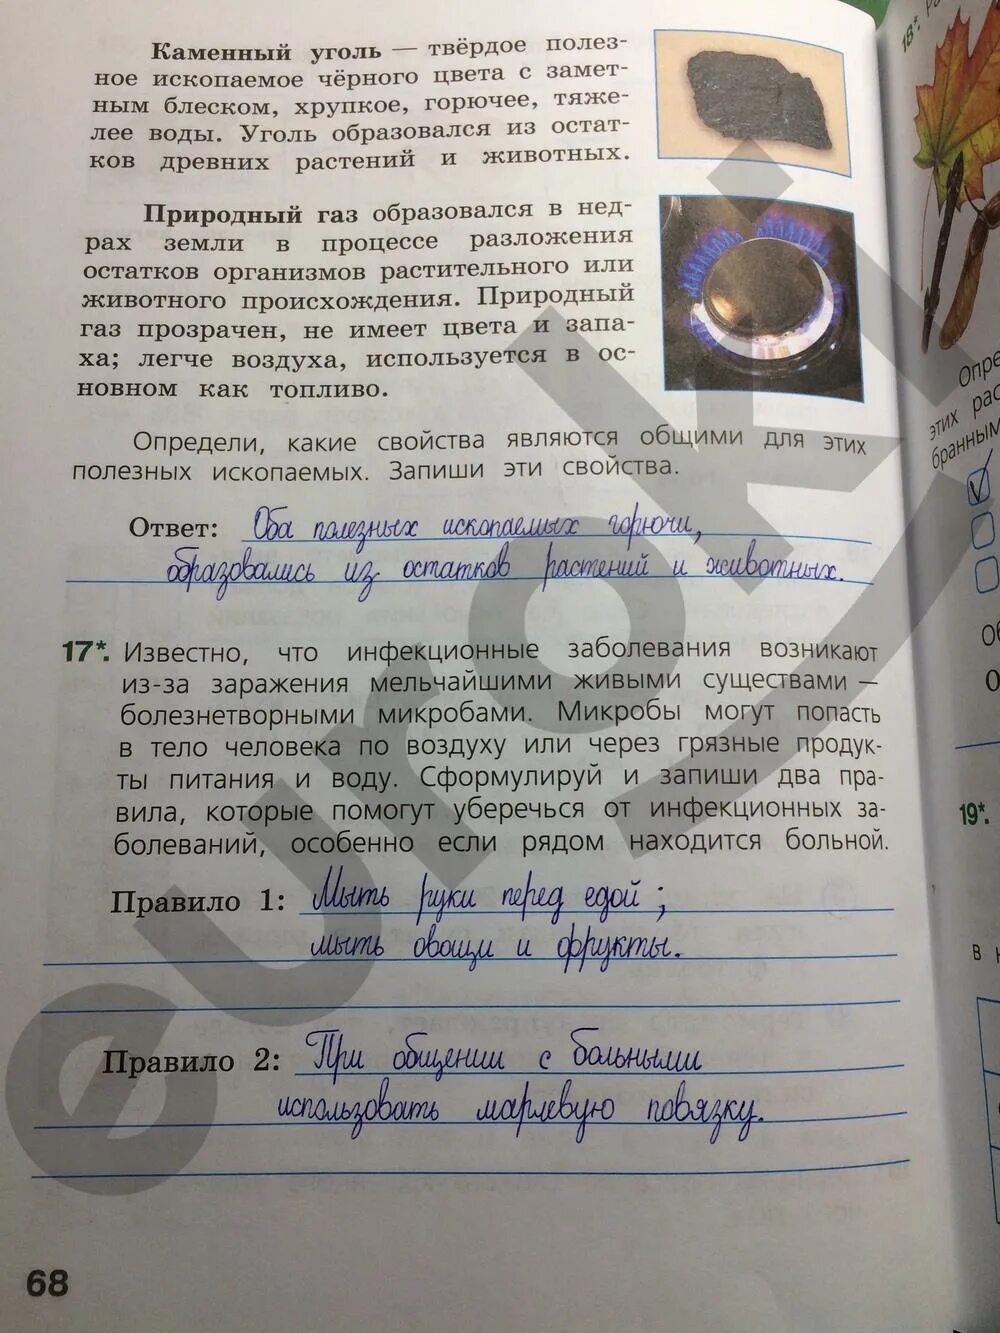 Каменный уголь — твёрдое полез-
ное ископаемое чёрного цвета с замет-
ным блеском, хрупкое, горючее, тяже-
лее воды. Уголь образовался из остат-
ков древних растений и животных.
Природный газ образовался в нед-
рах земли в процессе разложения
остатков организмов растительного или
животного происхождения. Природный
газ прозрачен, не имеет цвета и запа-
ха; легче воздуха, используется в ос-
новном как топливо.
Определи, какие свойства являются общими для этих
полезных ископаемых. Запиши эти свойства.
Ответ: Оба полезных ископаемых горючи,
образовались из остатков растений и животных.
17*. Известно, что инфекционные заболевания возникают
из-за заражения мельчайшими живыми существами —
болезнетворными микробами. Микробы могут попасть
в тело человека по воздуху или через грязные продук-
ты питания и воду. Сформулируй и запиши два пра-
вила, которые помогут уберечься от инфекционных за-
болеваний, особенно если рядом находится больной.
Правило 1: Мыть руки перед едой;
мыть овощи и фрукты.
Правило 2: При общении с больными
использовать марлевую повязку.
68
18*.
Опре
этих рас
бранным
19*.
euroki